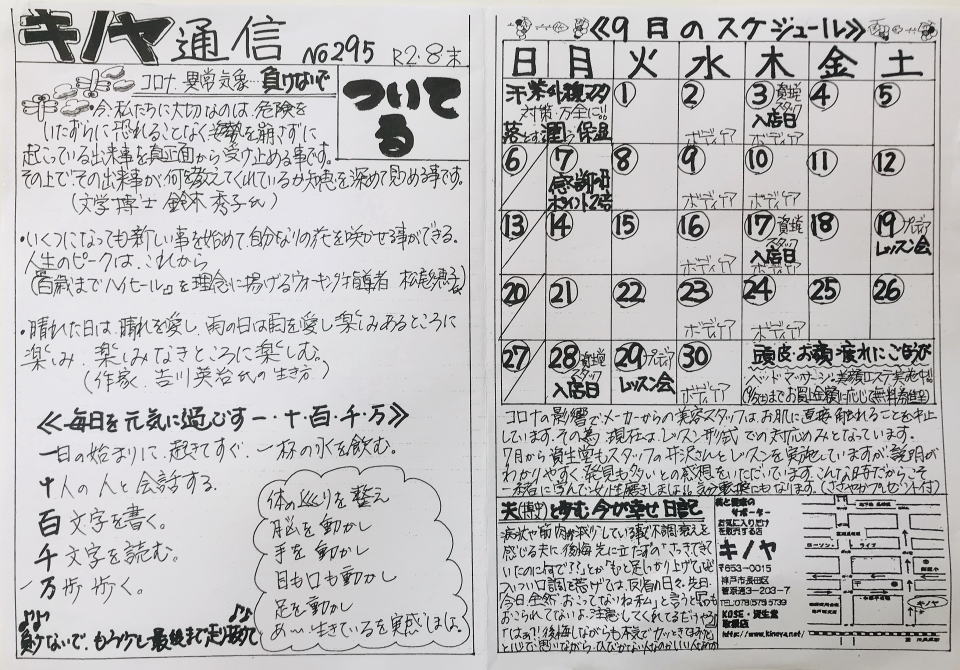 キノヤ通信 No295 R2・8・末
コロナ 異常気象 負けないで
ついてる
・今、私たちに大切なのは、危険を
いたずらに恐れることなく姿勢を崩さずに
起こっている出来事を真正面から受け止める事です。
その上で、その出来事が何を教えてくれているか知恵を深めて見つめる事です。
(文学博士 鈴木秀子氏)
・いくつになっても新しい事を始めて、自分なりの花を咲かせる事ができる。
人生のピークは、これから
(百歳までハイヒール』を理念に掲げるウォーキング指導者
・晴れた日は、晴れを愛し、雨の日は雨を愛し、楽しみあるところに
楽しみ、楽しみなきところに楽しむ。
(作家 吉川英治氏の生き方)
《毎日を元気に過ごす一・十・百・千・万》
一日の始まりに、起きてすぐ、一杯の水を飲む。
十人の人と会話する。
百文字を書く。
千文字を読む。
一万歩歩く。
体の巡りを整え
脳を動かし
手を動かし
目も口も動かし
足を動かし
あ〜、生きているを実感しましょう。
負けないで、もう少し最後まで走り抜けて
《9月のスケジュール》
日 月 火 水 木 金 土
汗・紫外線・マスク
対策・万全に!!
落とす・潤う・保温
1
2 ボディケア
3 資生堂 スタッフ 入店日 ボディケア
4
5
6
7 感謝日 ポイント2倍
8
9 ボディケア
10 ボディケア
11
12
13
14
15
16 ボディケア
17 資生堂 スタッフ 入店日 ボディケア
18
19 プレディア レッスン会
20
21
22
23 ボディケア
24 ボディケア
25
26
27
28 資生堂 スタッフ 入店日
29 プレディア レッスン会
30 ボディケア
頭皮・お顔・疲れにごほうび
ヘッド・マッサージ・美顔エステ実施中!!
コロナの影響でメーカーからの美容スタッフは、お肌に直接触れることを中止
しています。その為、現在は、レッスン形式での対応のみとなっています。
7月から資生堂もスタッフの井沢さんとレッスンを実施していますが説明が
わかりやすく、発見も多いとの感想をいただいています。こんな時だからこそ
一緒に学んで女性磨きしましょう。気分転換にもなります。(ささやかプレゼント付)
夫(博中)と歩む 今が幸せ 日記
病状や筋肉が減少している事で不調、衰えを
感じる夫に、後悔先に立たずの「さっきできて
美と健康の
サポーター
お気に入りだけ
を販売する店
キノヤ
〒653-0015
神戸市長田区
菅原通3-203-7
KOSE・資生堂
取扱店
http://www.kinoya.net/
ローソン
ライフ
キノヤ